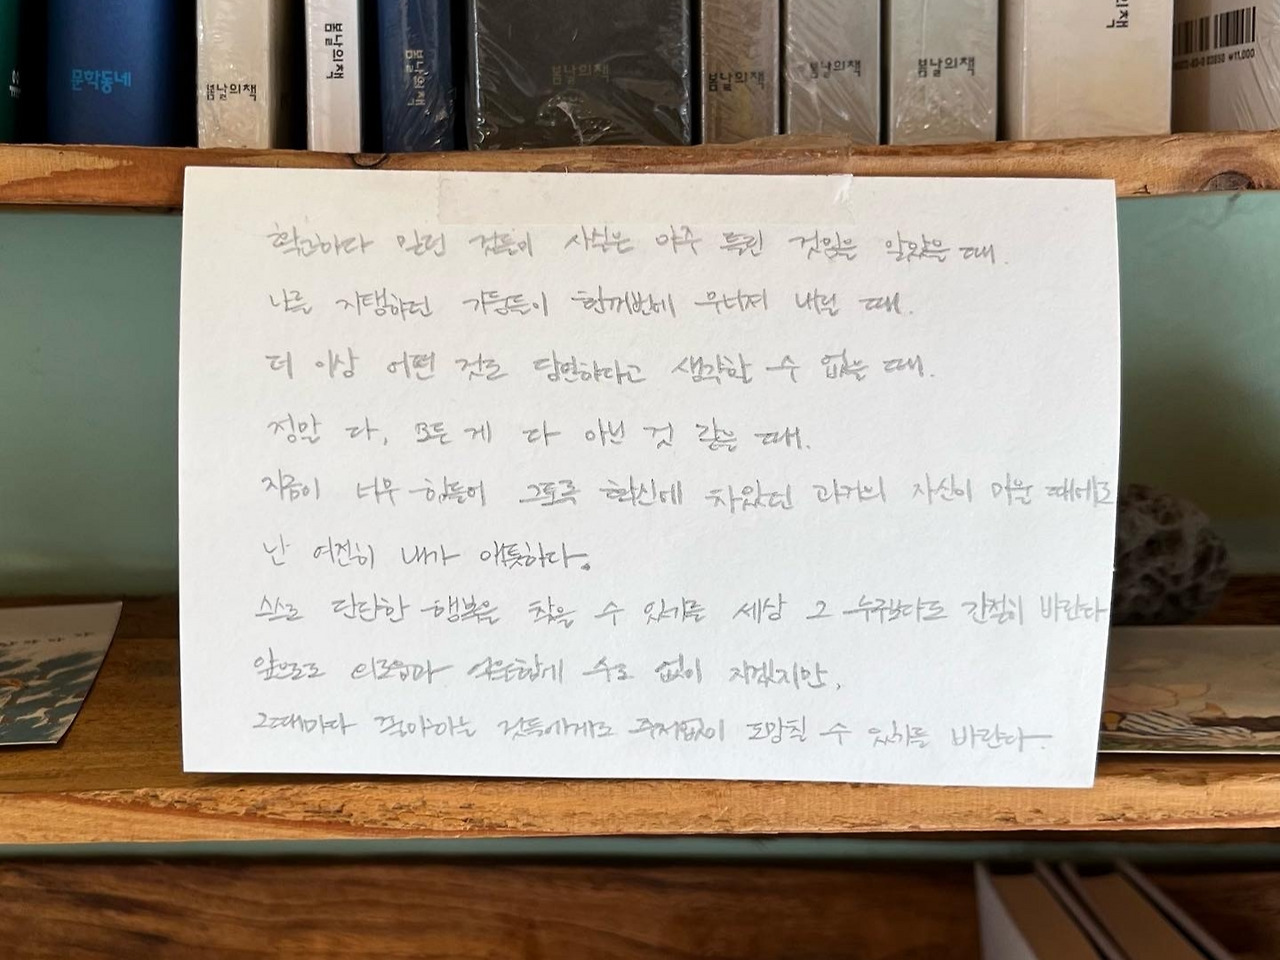 문학동네
봄날의책
봄날의책
봄날의책
봄날의책
봄날의책
봄날의책
봄날의책
의책
03850 ₩11,000
확고하다 믿던 것들이 사실은 아주 틀린 것임을 알았을 때.
나를 지탱하던 기둥들이 한꺼번에 무너져 내릴 때.
더 이상 어떤 것도 당연하다고 생각할 수 없을 때.
정말 다, 모든 게 다 아닌 것 같을 때.
지금이 너무 힘들어 그토록 확신에 차있던 과거의 자신이 미울 때에도
난 여전히 내가 애틋하다.
스스로 단단한 행복을 찾을 수 있기를 세상 그 누구보다도 간절히 바란다
앞으로도 외로움과 악수하게 수도 없이 지겠지만,
그때마다 좋아하는 것들에게로 주저없이 도망칠 수 있기를 바란다.